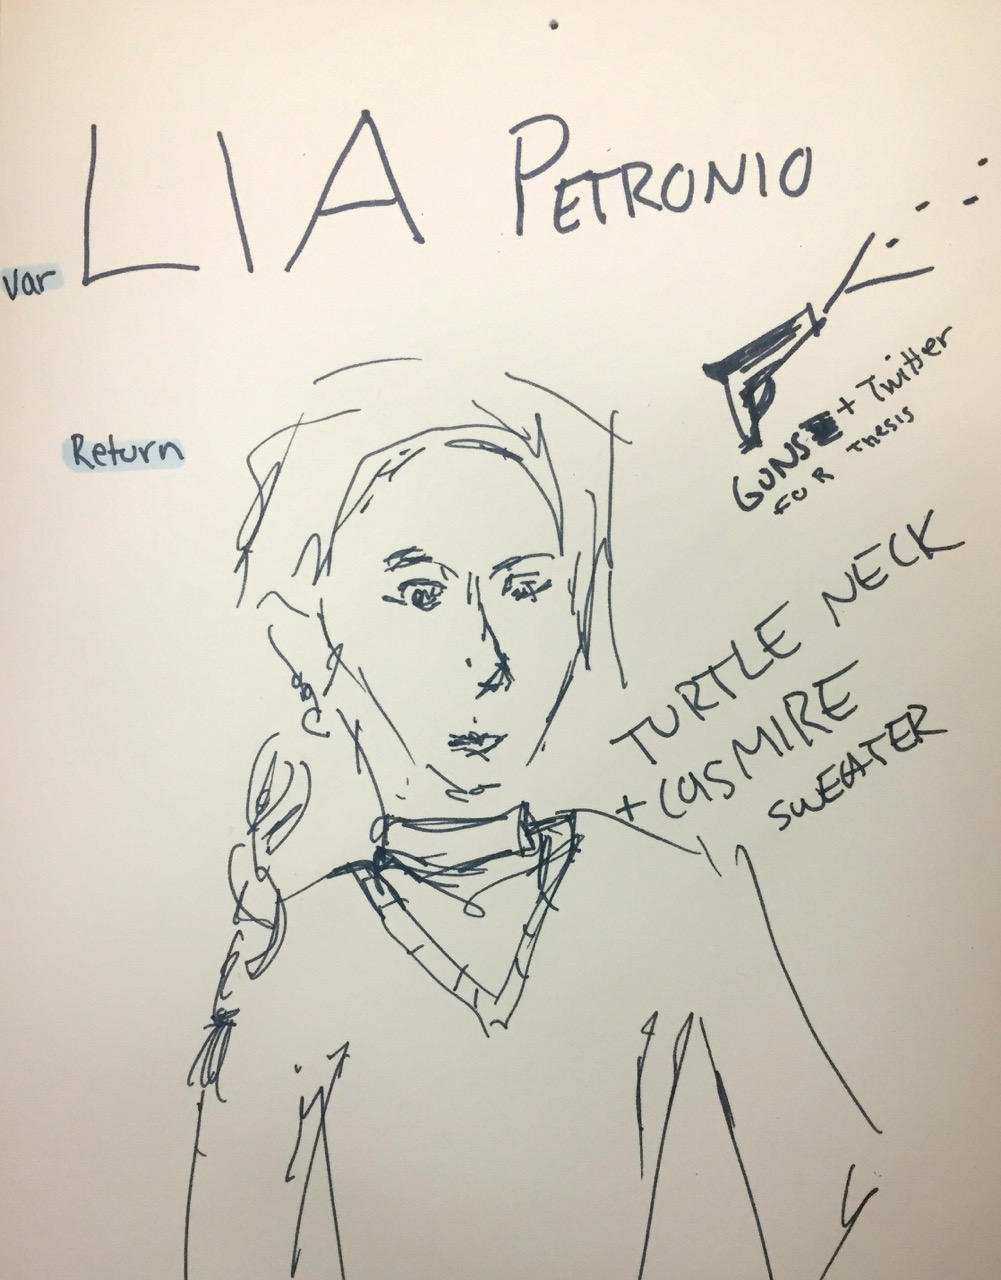 LIA PETRONIO
var
Return
GUNS + Twitter
FOR Thesis
TURTLE NECK
+ CASMIRE
SWEATER